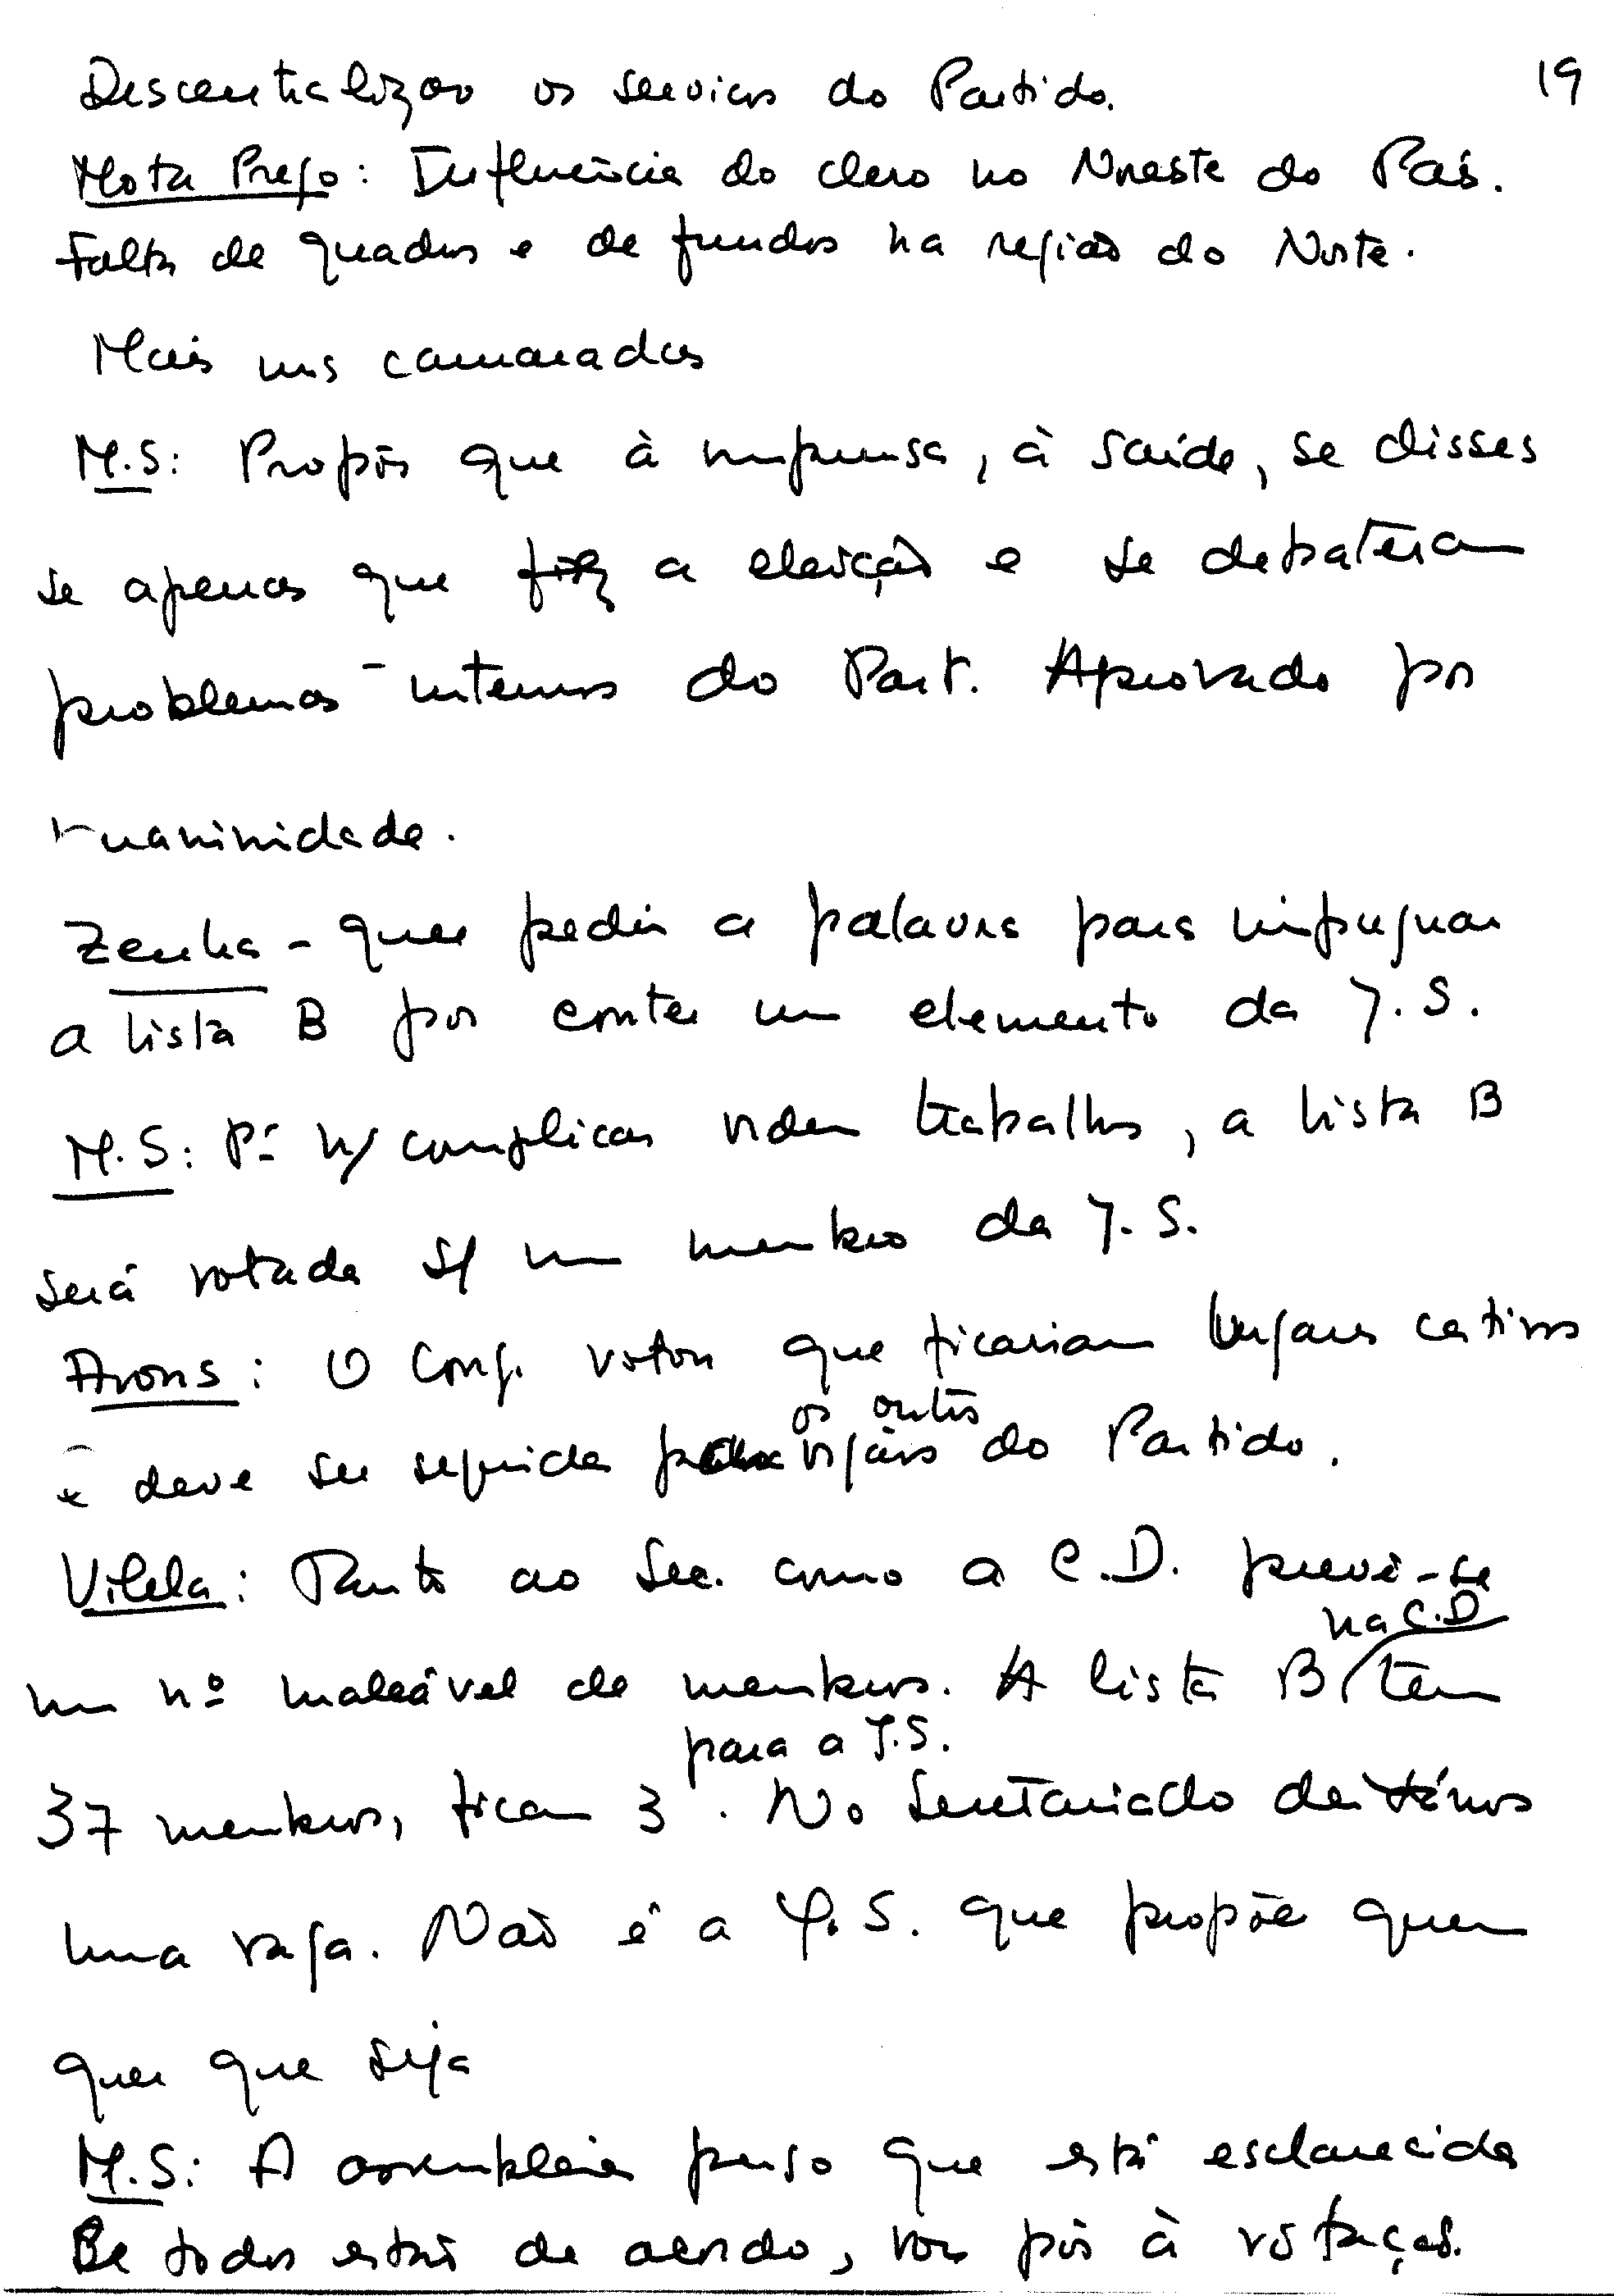 19
Descentralizar os serviços do Partido.
Mota Prego: Influência do clero no Noroeste do País.
Falta de quadros e de fundos na região do Norte.
Mais uns camaradas
M.S: Propôs que à imprensa, à saída, se disses
se apenas que fez a eleição e se debateram
problemas internos do Part. Aprovado por
unanimidade.
Zenha - quer pedir a palavra para impugnar
a lista B por conter um elemento da J.S.
M.S: Pª n/ complicar ordem trabalhos, a lista B
será votada s/ um membro da J.S.
Arons: O Cong. votou que ficariam lugares cativos
e deve ser seguida para os outros orgãos do Partido.
Vilela: Tanto ao Sec. como a C.D. prevê-se
um nº maleável de membros. A lista B na C.D tem
37 membros, ficam 3 para a J.S. No Secretariado deixámos
uma vaga. Não é a J.S. que propõe quem
quer que seja
M.S: A assembleia penso que está esclarecida
Se todos estão de acordo, vou pôr à votação.